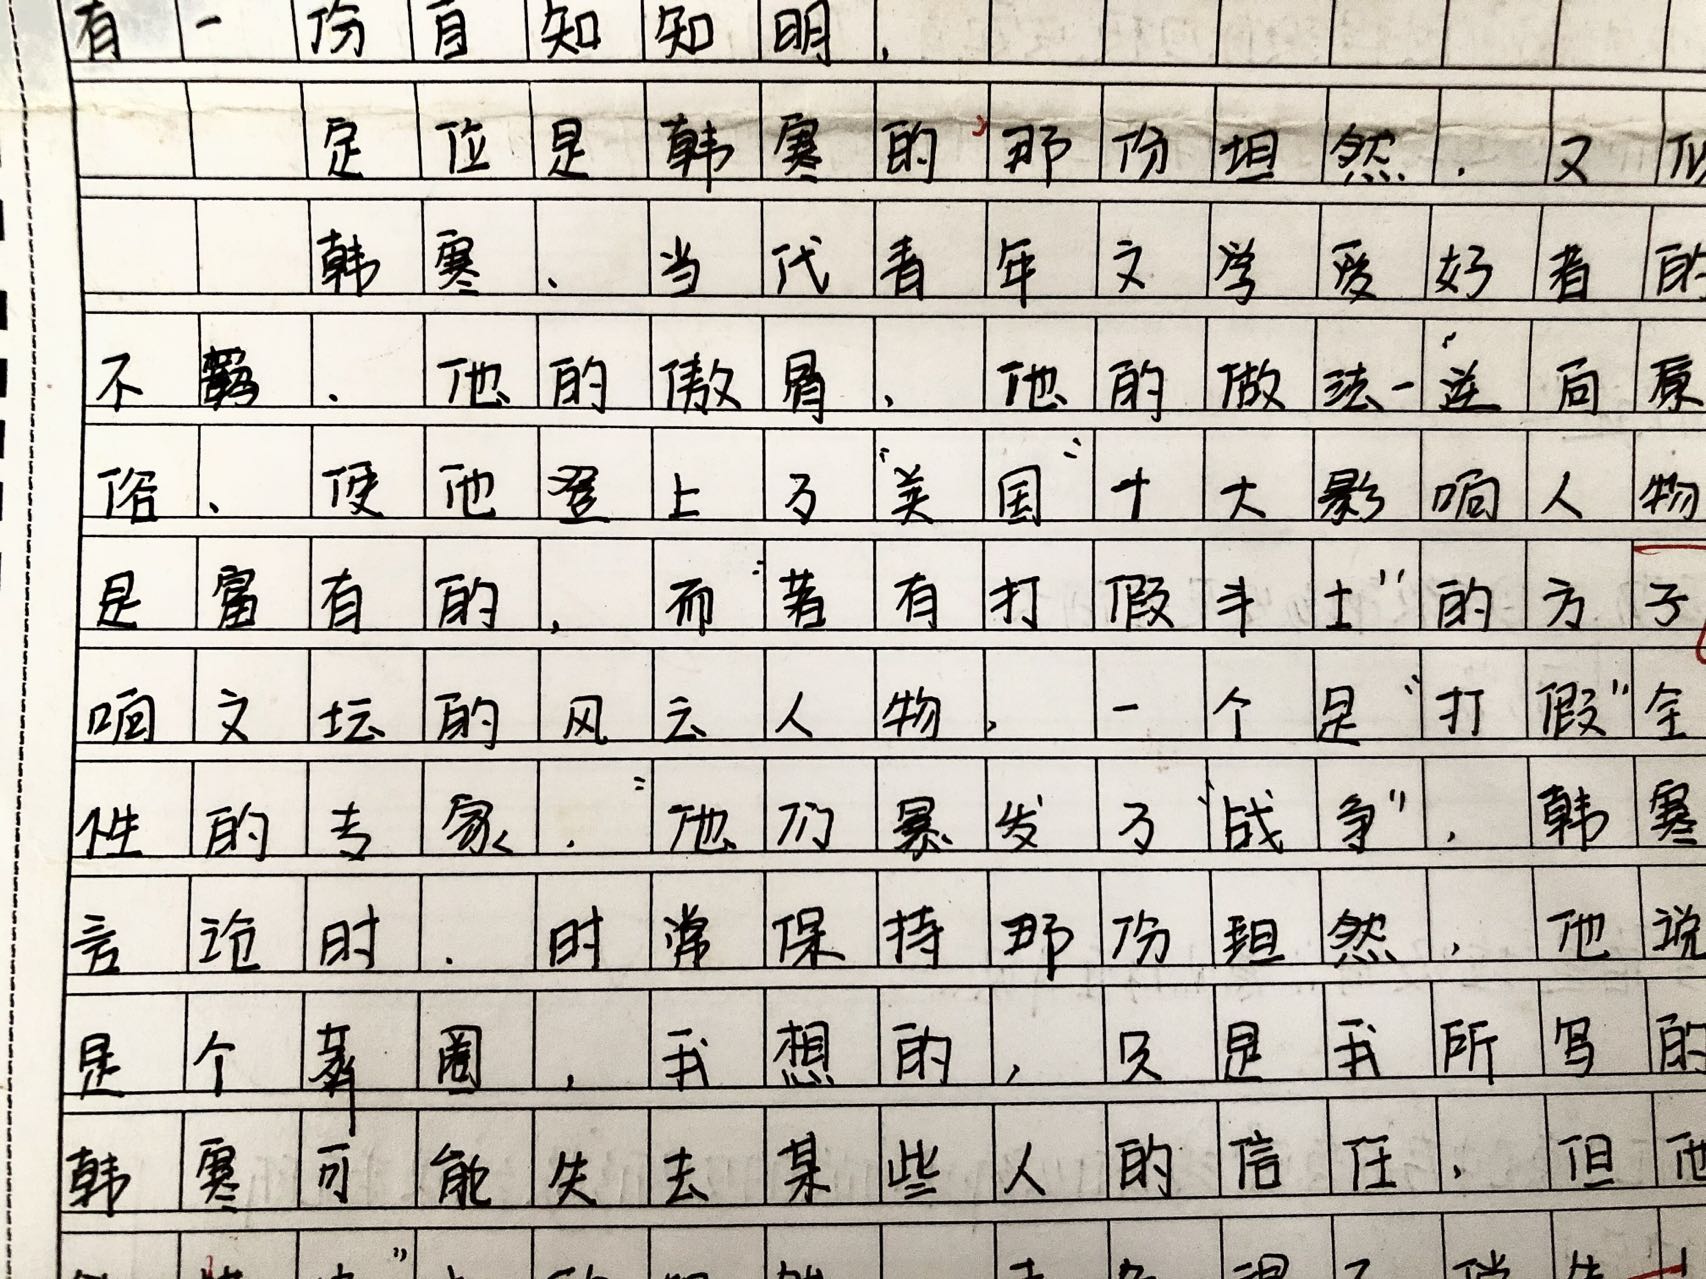 有一份自知知明，
定位是韩寒的那份坦然．又似
韩寒、当代青年文学爱好者的
不羁．他的傲骨，他的做法一连向原
俗、使他登上了“美国”十大影响人物
是富有的，而“著有打假斗士”的方子
响文坛的风云人物，一个是“打假”全
性的专家．“他们暴发了“战争”，韩寒
言论时．时常保持那份坦然，他说
是个 圈，我想的，只是我所写的
韩寒可能失去某些人的信任，但他